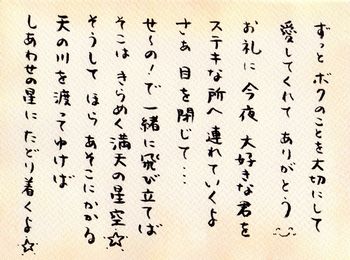 ずっと ボクのことを大切にして
愛してくれて ありがとう
お礼に 今夜 大好きな君を
ステキな所へ 連れていくよ
さぁ 目を閉じて・・・
せ〜の！で 一緒に飛び立てば
そこは きらめく満天の星空☆
そうして ほら あそこにかかる
天の川を渡ってゆけば
しあわせの星に たどり着くよ☆